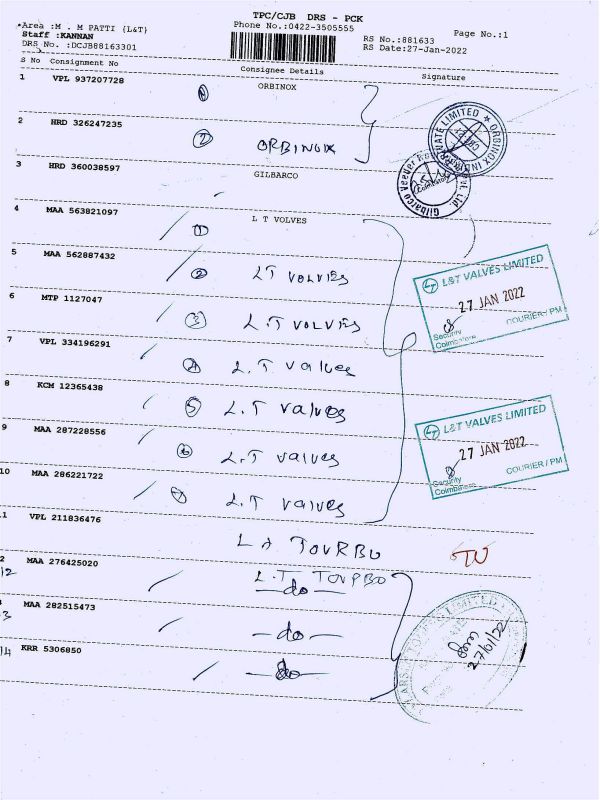 TPC/CJB DRS - PCK
Area :M . M PATTI (L&T)
Phone No.:0422-3505555
Page No.:1
Staff :KANNAN
RS No.:881633
DRS No. :DCJB88163301
RS Date:27-Jan-2022
S No Consignment No Consignee Details Signature
1 VPL 937207728 ① ORBINOX
2 HRD 326247235 ② ORBINOX
3 HRD 360038597 GILBARCO
4 MAA 563821097 ① L T VOLVES
5 MAA 562887432 ② LT VOLVES
6 MTP 1127047 ③ L.T VOLVES
7 VPL 334196291 ④ L.T Valves
8 KCM 12365438 ⑤ L.T Valves
9 MAA 287228556 ⑥ L.T Valves
10 MAA 286221722 ⑦ L.T Valves
11 VPL 211836476 L T TOURBO
12 MAA 276425020 L.T TOURBO
do
MAA 282515473 do
14 KRR 5306850 do
ORBINOX INDIA PRIVATE LIMITED
Gilbarco Veeder
Ltd
Coimbatore
L&T VALVES LIMITED
27 JAN 2022
Security
COURIER / PM
Coimbatore
L&T VALVES LIMITED
27 JAN 2022
Security
COURIER / PM
Coimbatore
LIMITED
27/01/22